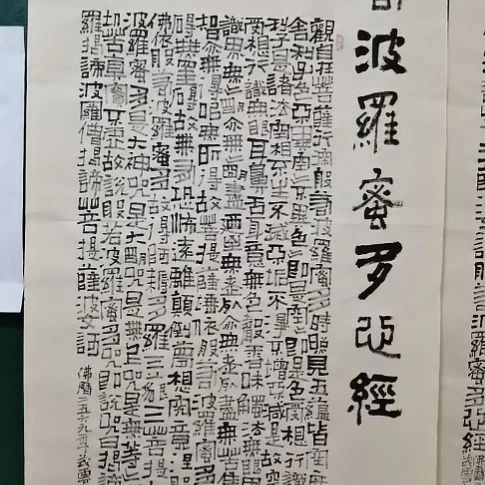 波羅蜜多心經
觀自在菩薩行深般若波羅蜜多時照見五蘊皆空
舍利子色不異空空不異色色即是空空即是色受想行識
利子是諸法空相不生不滅不垢不淨不增不減是故空
受想行識無眼耳鼻舌身意無色聲香味觸法無眼
識界無無明亦無無明盡乃至無老死亦無老死盡無苦集
智亦無得以無所得故菩提薩埵依般若波羅蜜多
礙無罣礙故無有恐怖遠離顛倒夢想究竟涅
佛依般若波羅蜜多故得阿耨多羅三藐三菩提
波羅蜜多是大神咒是大明咒是無上咒是無等等
切苦真實不虛故說般若波羅蜜多咒即說咒曰揭諦
羅揭諦波羅僧揭諦菩提薩婆訶
佛曆二五六九年